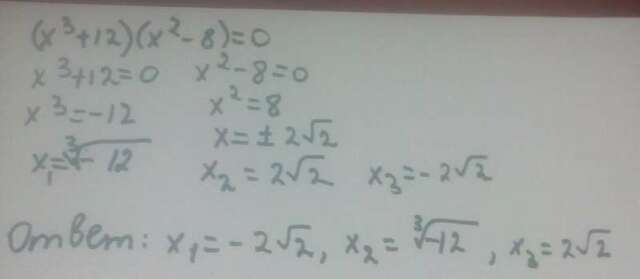 (x³+12)(x²-8)=0
x³+12=0 x²-8=0
x³=-12 x²=8
x=±2√2
x₁=∛-12 x₂=2√2 x₃=-2√2
Ответ: x₁=-2√2, x₂=∛-12, x₃=2√2